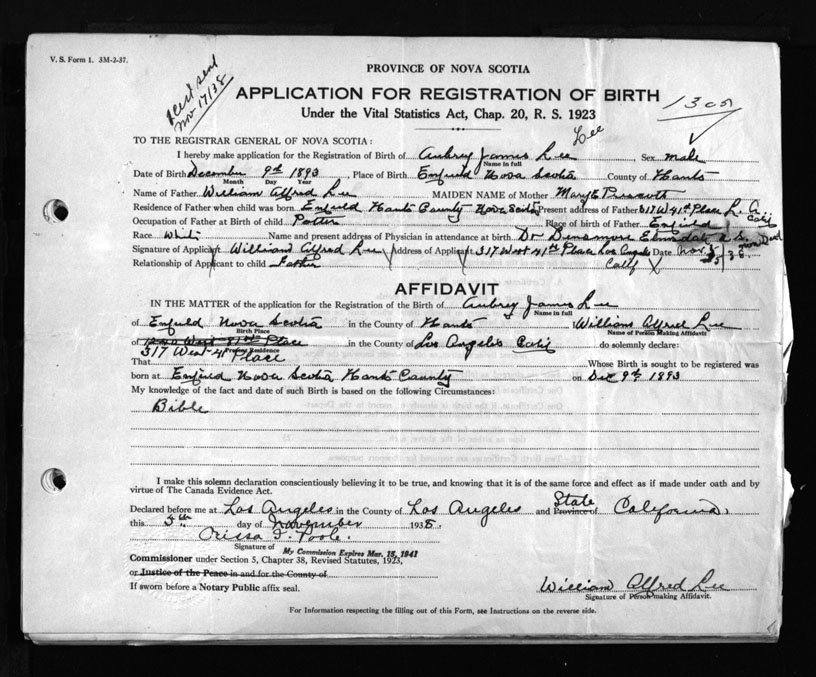 V. S. Form 1. 3M-2-37.
Nov 17/38
PROVINCE OF NOVA SCOTIA
APPLICATION FOR REGISTRATION OF BIRTH
Under the Vital Statistics Act, Chap. 20, R. S. 1923
Lee
TO THE REGISTRAR GENERAL OF NOVA SCOTIA:
I hereby make application for the Registration of Birth of Aubrey James Lee Sex male
Name in full
Date of Birth December 9th 1893, Place of Birth Enfield Nova Scotia County of Hants
Month Day Year
Name of Father William Alfred Lee MAIDEN NAME of Mother Mary E Prescott
Residence of Father when child was born Enfield Hants County Nova Scotia Present address of Father 317 W 41st Place L. A. Calif
Occupation of Father at Birth of child Potter Place of birth of Father Enfield
Race White Name and present address of Physician in attendance at birth Dr Dinsmore Elmsdale Dead
Signature of Applicant William Alfred Lee Address of Applicant 317 West 41st Place Los Angeles Date Nov 5 38
Relationship of Applicant to child Father Calif
AFFIDAVIT
IN THE MATTER of the application for the Registration of the Birth of Aubrey James Lee
Name in full
of Enfield Nova Scotia in the County of Hants I William Alfred Lee
Birth Place Name of Person Making Affidavit
of West Place in the County of Los Angeles Calif do solemnly declare:
Present Residence
317 West 41st Place
That Whose Birth is sought to be registered was
born at Enfield Nova Scotia Hants County on Dec 9th 1893
My knowledge of the fact and date of such Birth is based on the following Circumstances:
Bible
I make this solemn declaration conscientiously believing it to be true, and knowing that it is of the same force and effect as if made under oath and by
virtue of The Canada Evidence Act.
Declared before me at Los Angeles in the County of Los Angeles and State Province of California
this 5th day of November 1938.
Orissa I. Poole
Signature of My Commission Expires Mar. 15, 1941
Commissioner under Section 5, Chapter 38, Revised Statutes, 1923,
or Justice of the Peace in and for the County of
If sworn before a Notary Public affix seal.
William Alfred Lee
Signature of Person making Affidavit.
For Information respecting the filling out of this Form, see Instructions on the reverse side.